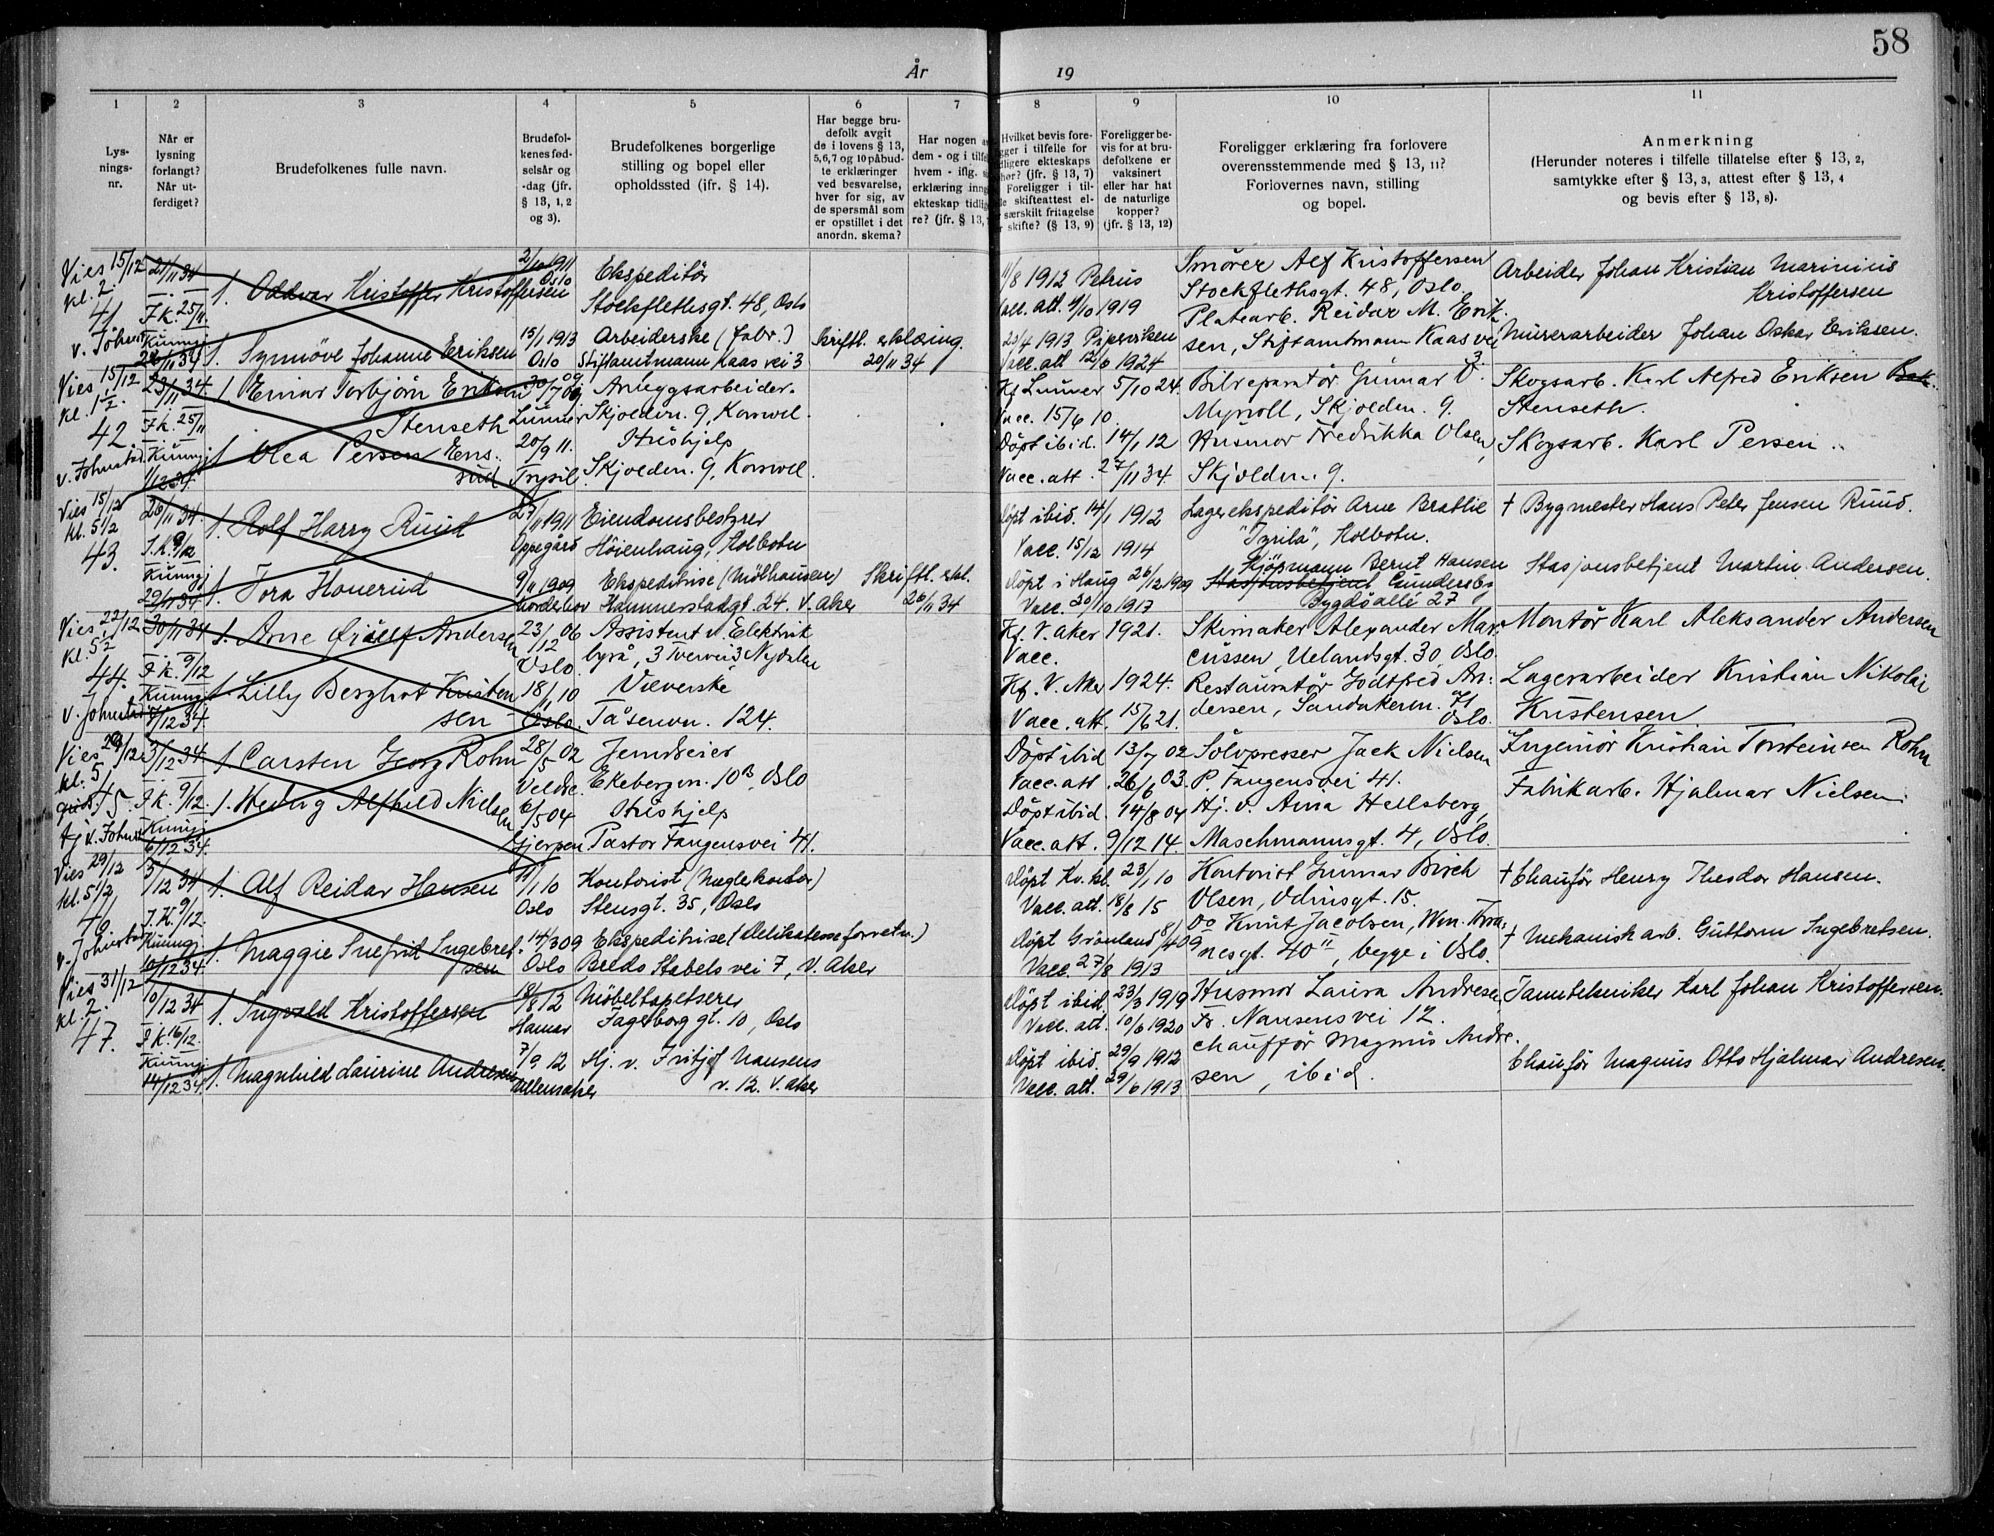 58
År
19
1
2
3
4
5
6
7
8
9
10
11
Lys-
nings-
nr.
Når er
lysning
forlangt?
Når ut-
ferdiget?
Brudefolkenes fulle navn.
Brudefol-
kenes fød-
selsår og
-dag (jfr.
§ 13, 1, 2
og 3).
Brudefolkenes borgerlige
stilling og bopel eller
opholdssted (jfr. § 14).
Har begge bru-
defolk avgit
de i lovens § 13,
5,6,7 og 10 påbud-
te erklæringer
ved besvarelse,
hver for sig, av
de spørsmål som
er opstillet i det
anordn. skema?
Har nogen a
dem - og i tilfe
hvem - iflg. s
erklæring inng
ekteskap tidlig
re? (jfr. § 13,
Hvilket bevis fore-
gger i tilfelle for
dligere ekteskaps
hør? (jfr. § 13, 7)
Foreligger i til-
le skifteattest el-
særskilt fritagelse
r skifte? (§ 13, 9)
Foreligger be-
vis for at bru-
defolkene er
vaksinert
eller har hat
de naturlige
kopper?
(jfr. § 13, 12)
Foreligger erklæring fra forlovere
overensstemmende med § 13, 11?
Forlovernes navn, stilling
og bopel.
Anmerkning
(Herunder noteres i tilfelle tillatelse efter § 13, 2,
samtykke efter § 13, 3, attest efter § 13, 4
og bevis efter § 13, 8).
Vies 15/12
kl. 2.
41
21/11 34
F.k. 25/11.
1. Oddvar Kristoffer Kristoffersen
2/10 1911
Oslo
Ekspeditør
Stockflethsgt. 48, Oslo
11/8 1912 Petrus
Vacc. att. 4/10 1919
Smører Alf Kristoffersen
Stockflethsgt. 48, Oslo
Platearb. Reidar M. Erik-
Arbeider Johan Kristian Marinius
Kristoffersen
1. Synnöve Johanne Eriksen
15/1 1913
Oslo
Arbeiderske (fabr.)
Stiftamtmann Kaas vei 3
Skriftl. erklæring.
20/11 34
23/4 1913 Pipervikens
Vacc. att 12/6 1924
sen, Stiftamtmann Kaas vei
3.
Murerarbeider Johan Oskar Eriksen.
Vies 15/12
kl. 1 1/2.
42
23/11 34.
F.k. 25/11
1. Einar Torbjörn Eriksen
Stenseth
30/7 09
Lunner
Anleggsarbeider.
Skjoldvn. 9, Korsvoll.
Kf Lunner 5/10 24.
Vacc. 15/6 10.
Bilreparatör Gunnar O.
Myrvoll, Skjoldvn. 9.
Skogsarb. Karl Alfred Eriksen
Stenseth.
1. Olea Persen Ens-
rud
20/9 11.
Trysil
Hushjelp
Skjoldvn. 9, Korsvoll.
Döpt ibid. 14/1 12
Vacc. att. 27/11 34
Husmor Fredrikka Olsen,
Skjoldvn. 9.
Skogsarb. Karl Persen
Vies 15/12
kl. 5 1/2
43.
26/11 34.
1. Rolf Harry Ruud
27/11 1911
Oppegård
Eiendomsbestyrer
Höienhaug, Kolbotn
Döpt ibid. 14/1 1912
Vacc. 15/12 1914
Lagerekspeditör Arne Brattlie
"Tyrila", Kolbotn.
† Bygmester Hans Peter Jensen Ruud.
29/11 34
1. Tora Honerud
9/11 1909
Norderhov
Ekspeditrise (Mölhausen)
Kammersladgt. 24. V. Aker
Skriftl. erkl.
26/11 34
Döpt i Haug 26/12 1909
Vacc. 30/10 1917
Kjöpmann Bernt Hansen
Stasjonsbetjent Gundersby
Bygdöallé 27
Stasjonsbetjent Martin Andersen.
Vies 22/12
kl. 5 1/2
44.
30/11 34
F.k. 9/12
1. Arne Andersen
23/12 06
Oslo
Assistent v. Elektrik
byrå, 3 Tvervei 3 Nydalen
Kf. V. Aker 1921.
Vacc.
Skimaker Alexander Mar-
cussen, Uelandsgt. 30, Oslo.
Montör Karl Aleksander Andersen
1. Lilly Bergliot Kristen-
sen
18/1 10
Oslo
Veverske
Tåsenvn. 124.
Kf. V. Aker 1924.
Vacc. att. 15/6 21.
Restauratör Godtfred An-
dersen, Sandakervn. 71
Oslo.
Lagerarbeider Kristian Nikolai
Kristensen
kl. 5
3/12 34
F.k. 9/12.
1. Carsten Georg Rohn
28/5 02
Veldre
Jerndreier
Ekebergvn. 10B, Oslo
Döpt ibid 13/7 02
Vacc. att. 26/6 03.
Sölvpresser Jack Nielsen
P. Fangensvei 41.
Ingeniör Kristian Torsteinsen Rohn
6/12 34.
1. Hedvig Alfhild Nielsen
6/5 04
Gjerpen
Hushjelp
Pastor Fangensvei 41.
Döpt ibid. 14/8 04
Vacc. att. 9/12 14.
Hj. v. Anna Hellsberg,
Maschmannsgt. 4, Oslo.
Fabrikarb. Hjalmar Nielsen
Vies 29/12
kl. 5 1/2
46
3/12 34
F.k. 9/12.
1. Alf Reidar Hansen
11/1 10
Oslo
Kontorist (Meglerkontor)
Stensgt. 35, Oslo
Döpt Kv. kl. 23/1 10
Vacc. att. 18/8 15
Kontorist Gunnar Birch
Olsen, Odinsgt. 15.
† Chauför Henry Theodor Hansen.
10/12 34
1. Maggie Snefrid Ingebret-
sen
14/3 09
Oslo
Ekspeditrise (Delikatesseforretn.)
Breds Stabels vei 7, V. Aker
Döpt Grönland 8/4 09
Vacc. 27/8 1913
Do Knut Jacobsen, Wm. Thra-
nesgt. 40 II, begge i Oslo.
† Mekanisk arb. Guttorm Ingebretsen.
Vies 31/12
kl. 2.
47.
10/12 34
F.k. 16/12.
1. Ingvald Kristoffersen
18/8 12
Hamar
Möbeltapetserer
Fagerborggt. 10, Oslo
Döpt ibid. 23/3 1919
Vacc. att. 10/6 1920
Husmor Laura Andresen
Fr. Nansensvei 12.
Tanntekniker Karl Johan Kristoffersen.
14/12 34.
1. Magnhild Laurine Andresen
7/9 12
Ullensaker
Hj. v. Fritjof Nansens
v. 12. V. Aker
Döpt ibid. 29/9 1912
Vacc. att. 29/6 1913
Chaufför Magnus Andre-
sen, ibid.
Chauför Magnus Otto Hjalmar Andresen.